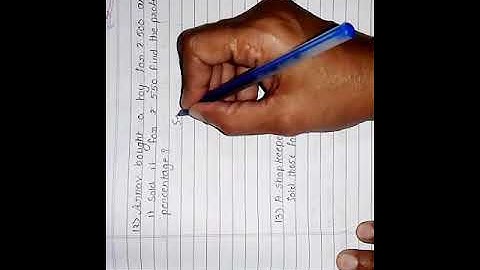 12) Annov bought a toy for ₹ 500 an
it sold it for ₹ 550 find the profi
percentage?
S
13) A shop keepe
Sold those fo